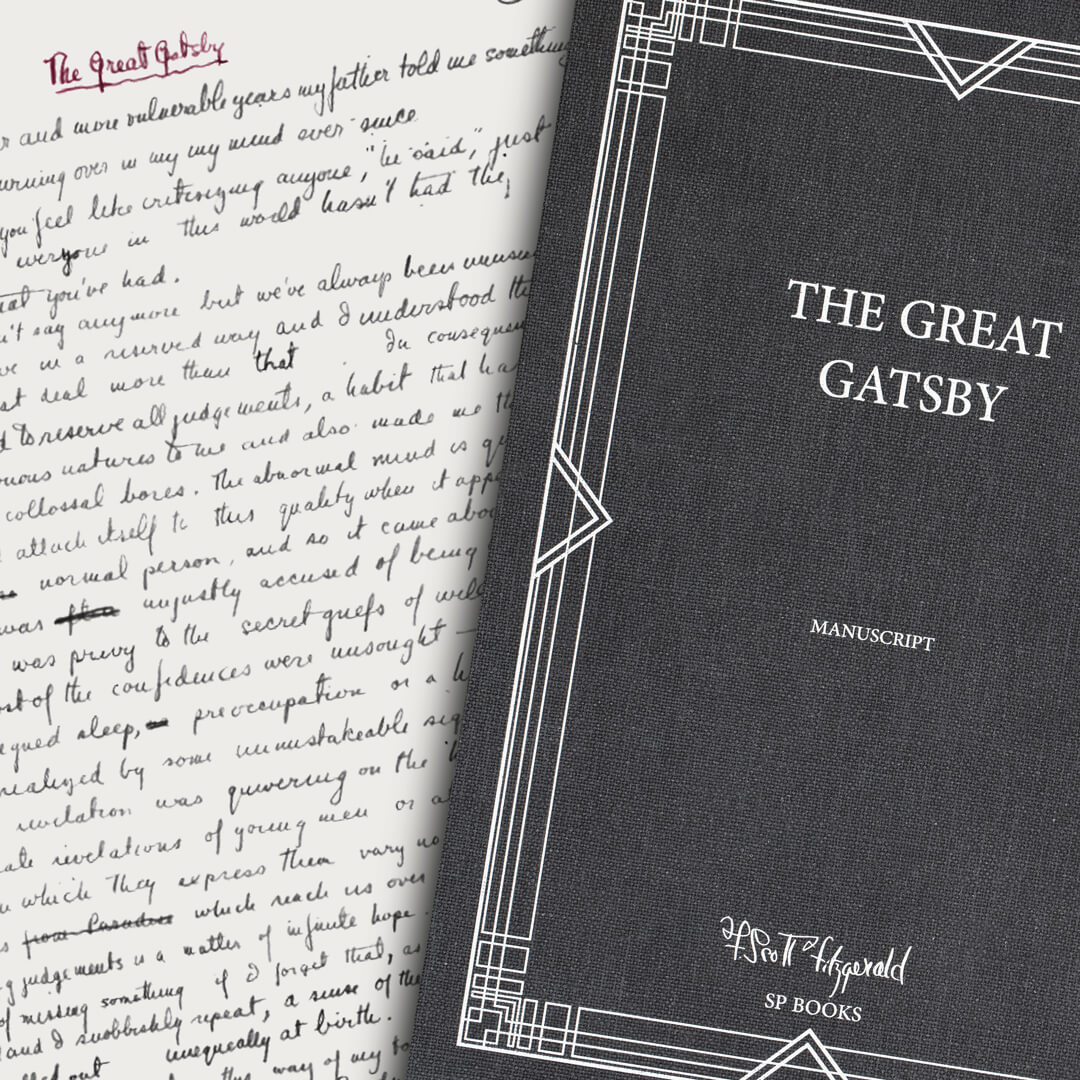 The Great Gatsby
and more vulnerable years my father told me something
turning over in my my mind ever since
you feel like criticizing anyone," he said", just
everyone in this world hasn't had the
that you've had.
n't say any more but we've always been unusu
ve in a reserved way and I understood th
deal more than that In consequen
to reserve all judgements, a habit that ha
natures to me and also made me th
collossal bores. The abnormal mind is qu
attach itself to this quality when it appe
normal person, and so it came abou
was unjustly accused of being
was privy to the secret griefs of wil
of the confidences were unsought —
sleep, preoccupation or a h
realized by some unmistakeable sig
revelation was quivering on the h
revelations of young men or a
in which they express them vary no
from Paradise which reach us over
judgements is a matter of infinite hope.
of missing something if I forget that, as
and I snobbishly repeat, a sense of the
out unequally at birth.
this way of my to
THE GREAT
GATSBY
MANUSCRIPT
F. Scott Fitzgerald
SP BOOKS